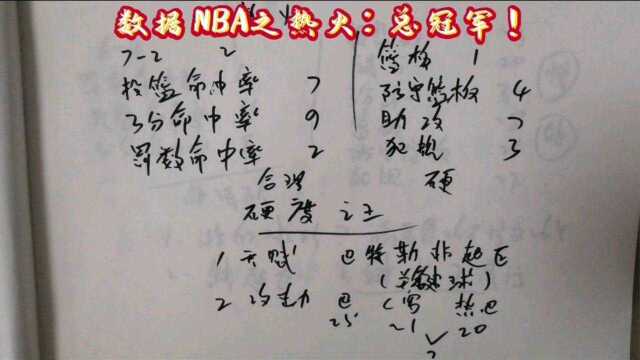 数据NBA之热火：总冠军！
7-2 2
投篮命中率 7
3分命中率 9
罚数命中率 2
篮板 1
防守篮板 4
助攻 7
犯规 3
合理 硬
硬度之王
1 天赋 巴特勒非超巨
(关键球)
2 攻击力 巴 热巴
25 21 20